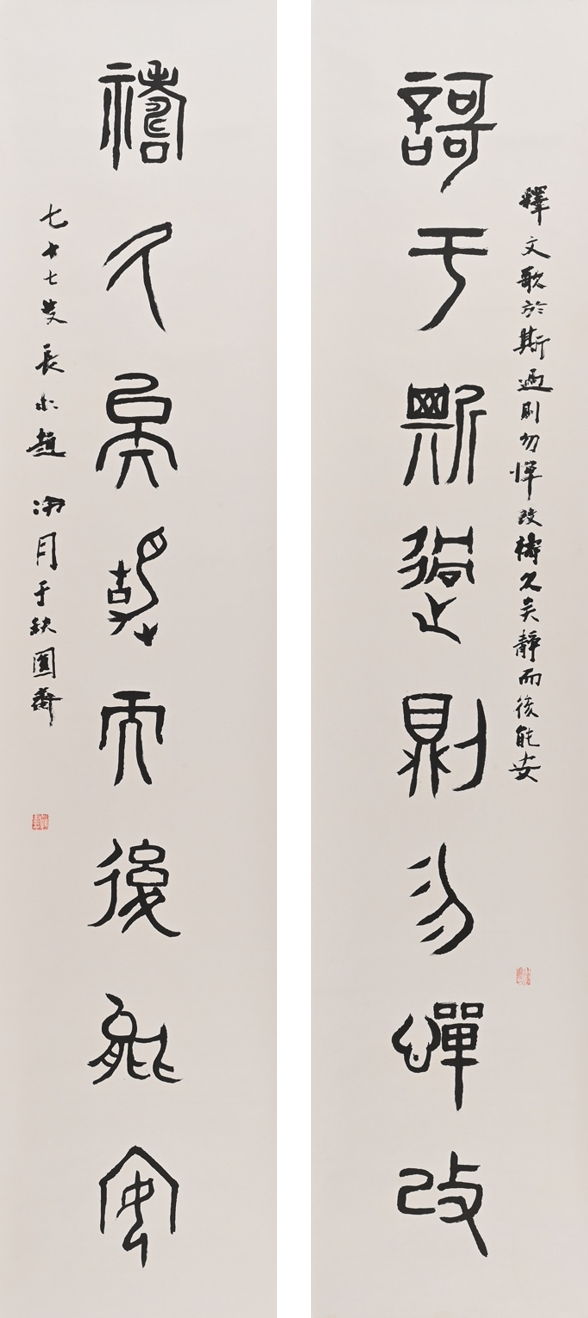 釋文歌於斯過則勿憚改禱久矣靜而後能安
謌于斯過則勿憚改
禱久矣靜而後能安
七十七叟長水趙冷月于缺圓齋